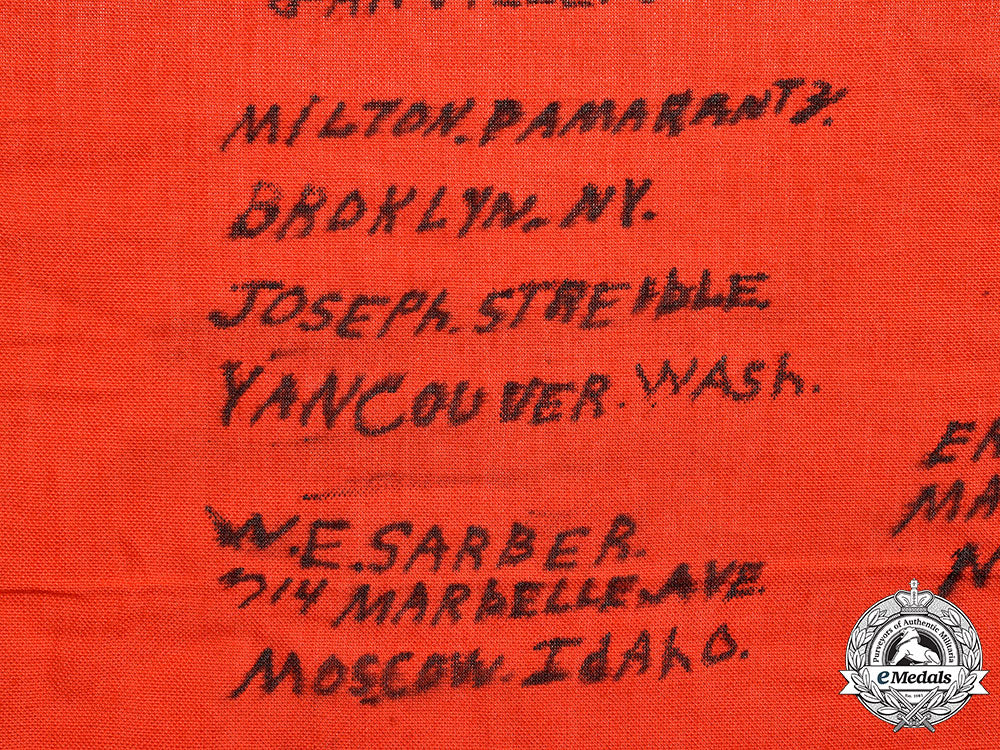 MILTON. PAMARANTZ.
BROKLYN. NY.
JOSEPh. STREIBLE.
VANCOUVER. WASh.
W.E. SARBER.
714 MARbELLE. AVE.
MOSCOW. IdAhO.
EN
MA
N
Purveyors of Authentic Militaria
eMedals